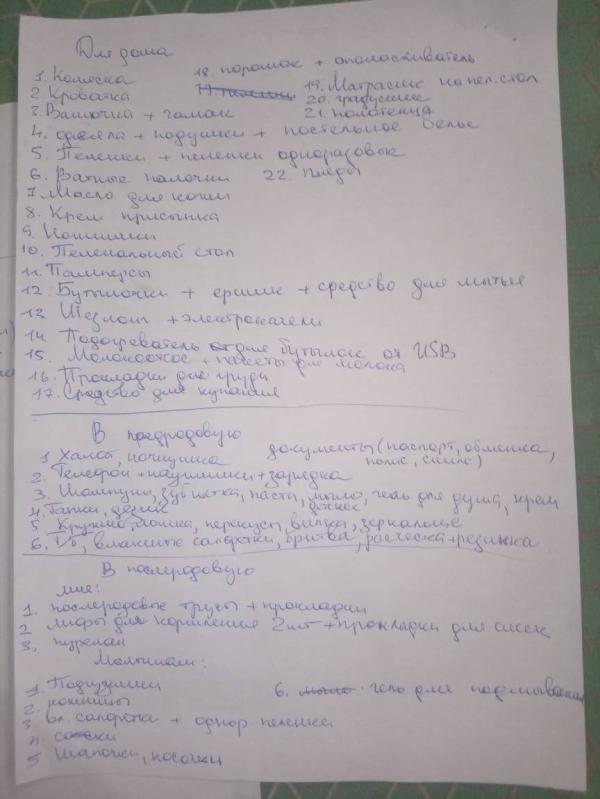 Для дома
1. Коляска
18. порошок + ополаскиватель
2. Кроватка
19. Матрасик на пел. стол
3. Ванночка + гамак
20. градусник
21. полотенца
4. одеяла + подушки + постельное белье
5. Пеленки + пеленки одноразовые
6. Ватные палочки
22. Пледы
7. Масло для кожи
8. Крем присыпка
9. Ножнички
10. Пеленальный стол
11. Памперсы
12. Бутылочки + ершик + средство для мытья
13. Шезлонг + электрокачели
14. Подогреватель для бутылок от USB
15. Молокоотсос + пакеты для молока
16. Прокладки для груди
17. Средство для купания
В предродовую
1. Халат, ночнушка
документы (паспорт, обменка,
полис, снилс)
2. Телефон + наушники + зарядка
3. Шампунь, зуб щетка, паста, мыло, гель для душа, крем
4. Тапки,
5. Кружка, ложка, перекусы, вилка, зеркальце
6. т/б, влажные салфетки, бритва, расческа + резинка
В послеродовую
мне:
1. послеродовые трусы + прокладки
2. лифы для кормления 2 шт + прокладки для сисек
3. пурелан
Малышам:
1. Подгузники
6. гель для подмывания
2.
3. вл. салфетки + однор пеленки
4. соски
5. Шапочки, носочки